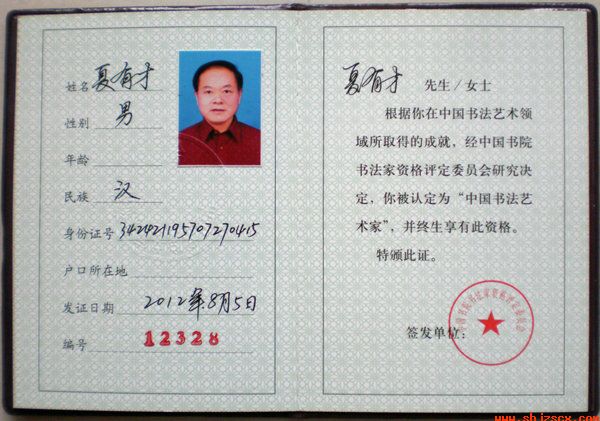 姓名 夏有才
性别 男
年龄
民族 汉
身份证号 342421195707270415
户口所在地
发证日期 2012年8月5日
编号 12328
夏有才 先生/女士
根据你在中国书法艺术领
域所取得的成就，经中国书院
书法家资格评定委员会研究决
定，你被认定为“中国书法艺
术家”，并终生享有此资格。
特颁此证。
签发单位：
中国书院书法家资格评定委员会